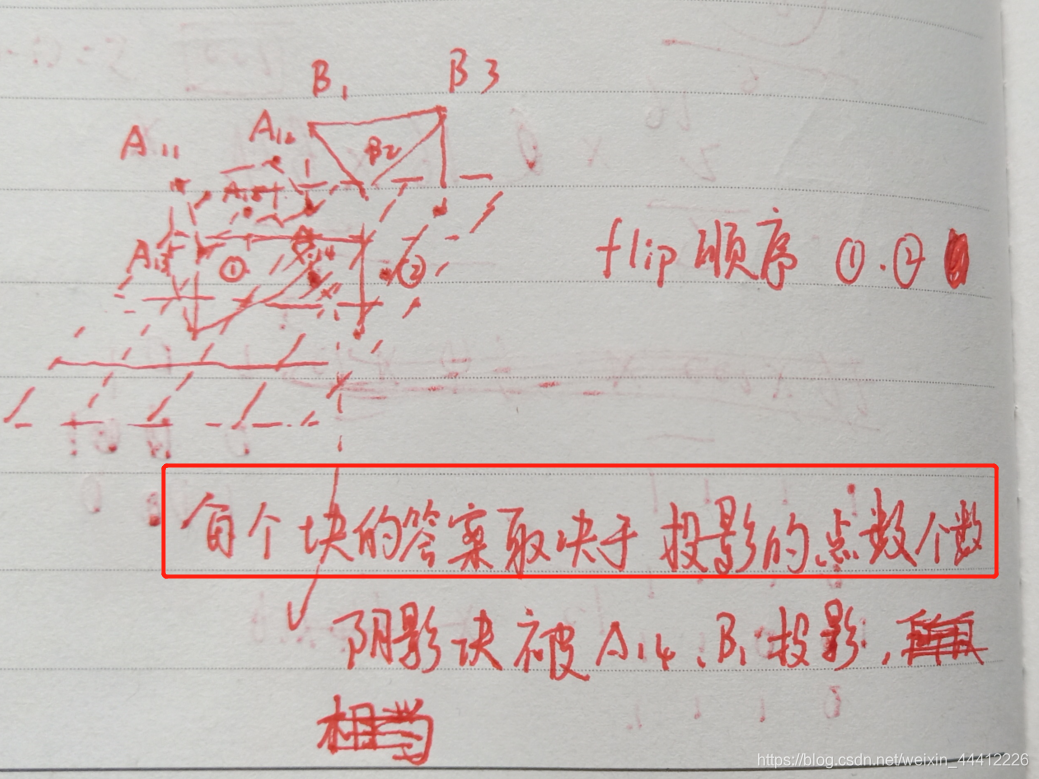 B1 B3
A11 A12 B2
A13 ① ②
flip 顺序 ①.②
每个块的答案取决于投影的点数个数
阴影块被 A14、B1 投影，
https://blog.csdn.net/weixin_44412226